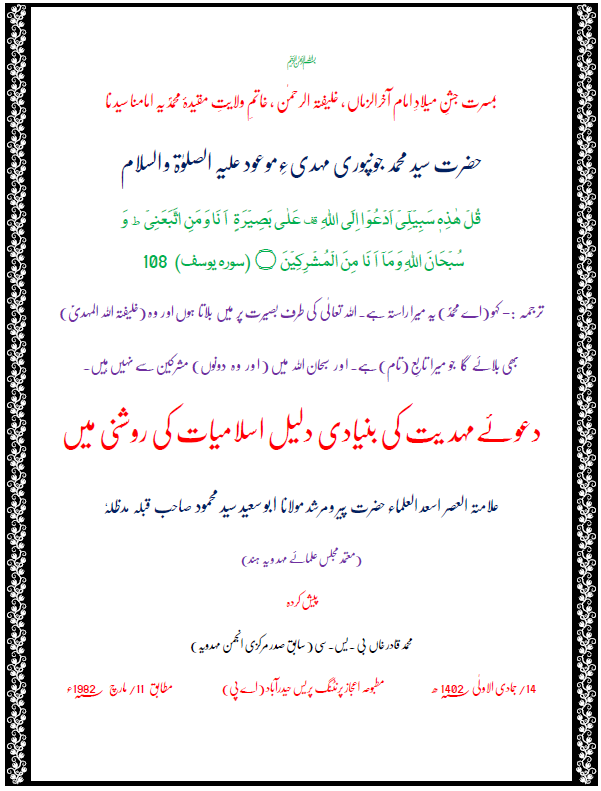 ﷽
بمسرت جشنِ میلادِ امام آخر الزماں ، خلیفۃ الرحمٰن ، خاتمِ ولایتِ مقیدۂ محمدؐیہ امامنا سیدنا
حضرت سید محمد جونپوری مہدیٔ موعود علیہ الصلوٰۃ والسلام
قُلْ هٰذِهٖ سَبِيْلِيْٓ اَدْعُوْٓا اِلَى اللّٰهِ قف عَلٰى بَصِيْرَةٍ اَنَا وَمَنِ اتَّبَعَنِيْ ط وَ
سُبْحَانَ اللّٰهِ وَمَآ اَنَا مِنَ الْمُشْرِكِيْنَ ۝ (سورہ یوسف) 108
ترجمہ :- کہو (اے محمدؐ) یہ میرا راستہ ہے۔ اللہ تعالٰی کی طرف بصیرت پر میں بلاتا ہوں اور وہ (خلیفۃ اللہ المہدیؑ)
بھی بلائے گا جو میرا تابع (تام) ہے۔ اور سبحان اللہ میں (اور وہ دونوں) مشرکین سے نہیں ہیں۔
دعوئے مہدیت کی بنیادی دلیل اسلامیات کی روشنی میں
علامۃ العصر اسعد العلماء حضرت پیر و مرشد مولانا ابو سعید سید محمود صاحب قبلہ مدظلہٗ
(معتمد مجلس علمائے مہدویہ ہند)
پیش کردہ
محمد قادر خاں بی ۔ یس۔ سی (سابق صدر مرکزی انجمن مہدویہ)
14/ جمادی الاولٰی 1402؁ ھ مطبوعہ اعجاز پرنٹنگ پریس حیدرآباد (اے پی) مطابق 11/ مارچ 1982؁ء